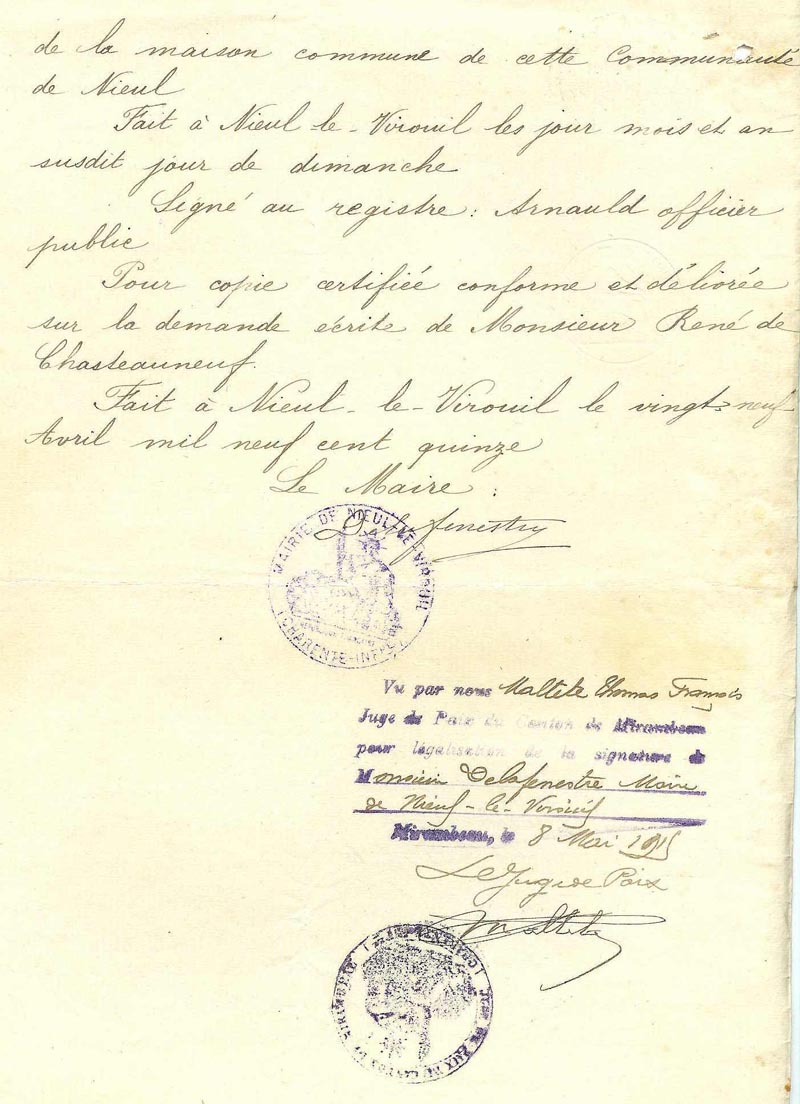 de la maison commune de cette Communauté
de Nieul
Fait à Nieul le-Virouil les jour mois et an
susdit jour de dimanche
Signé au registre : Arnauld officier
public
Pour copie certifiée conforme et délivrée
sur la demande écrite de Monsieur René de
Chasteauneuf.
Fait à Nieul-le-Virouil le vingt-neuf
Avril mil neuf cent quinze
Le Maire :
Delafenestre
MAIRIE DE NIEUL-LE-VIROUIL
(CHARENTE-INFRE)
Vu par nous Maltete Thomas François
Juge de Paix du Canton de Mirambeau
pour légalisation de la signature de
Monsieur Delafenestre Maire
de Nieuf-le-Virouil
Mirambeau, le 8 Mai 1915
Le Juge de Paix
Maltete